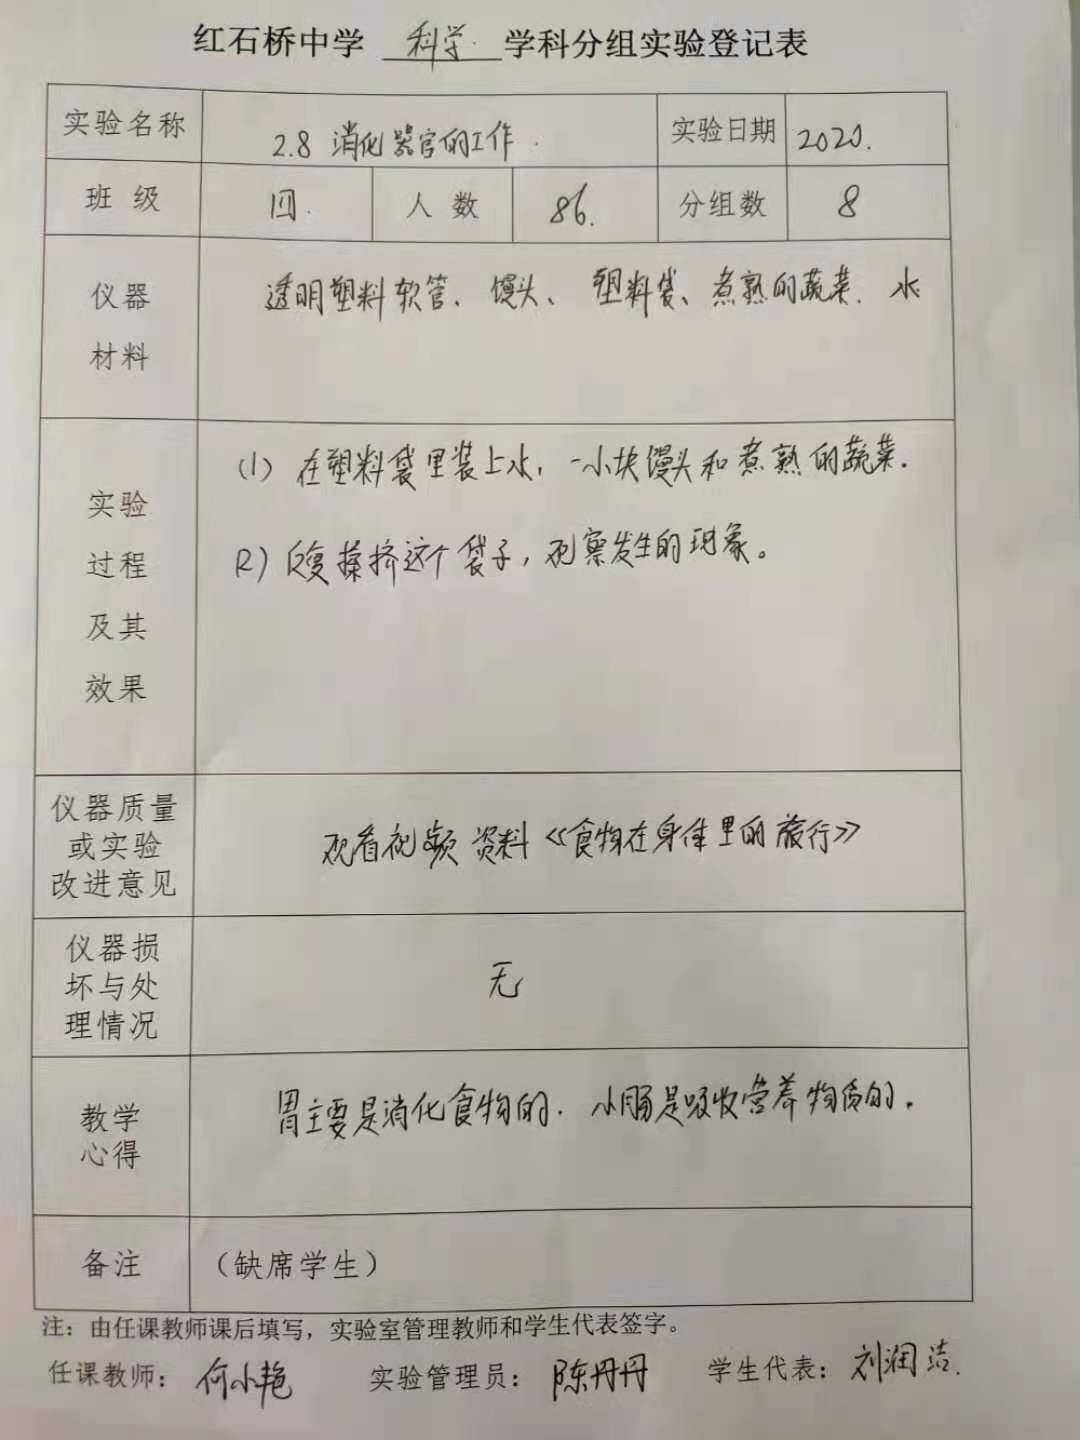 红石桥中学 科学 学科分组实验登记表
实验名称 2.8 消化器官的工作 实验日期 2020.
班 级 四 人 数 86. 分组数 8
仪器 透明塑料软管、馒头、塑料袋、煮熟的蔬菜. 水
材料
(1) 在塑料袋里装上水, 一小块馒头和煮熟的蔬菜.
实验
(2) 反复揉挤这个袋子, 观察发生的现象。
过程
及其
效果
仪器质量
或实验 观看视频资料《食物在身体里的旅行》
改进意见
仪器损
坏与处 无
理情况
教学 胃主要是消化食物的. 小肠是吸收营养物质的.
心得
备注 (缺席学生)
注: 由任课教师课后填写, 实验室管理教师和学生代表签字。
任课教师: 何小艳 实验管理员: 陈丹丹 学生代表: 刘润洁.